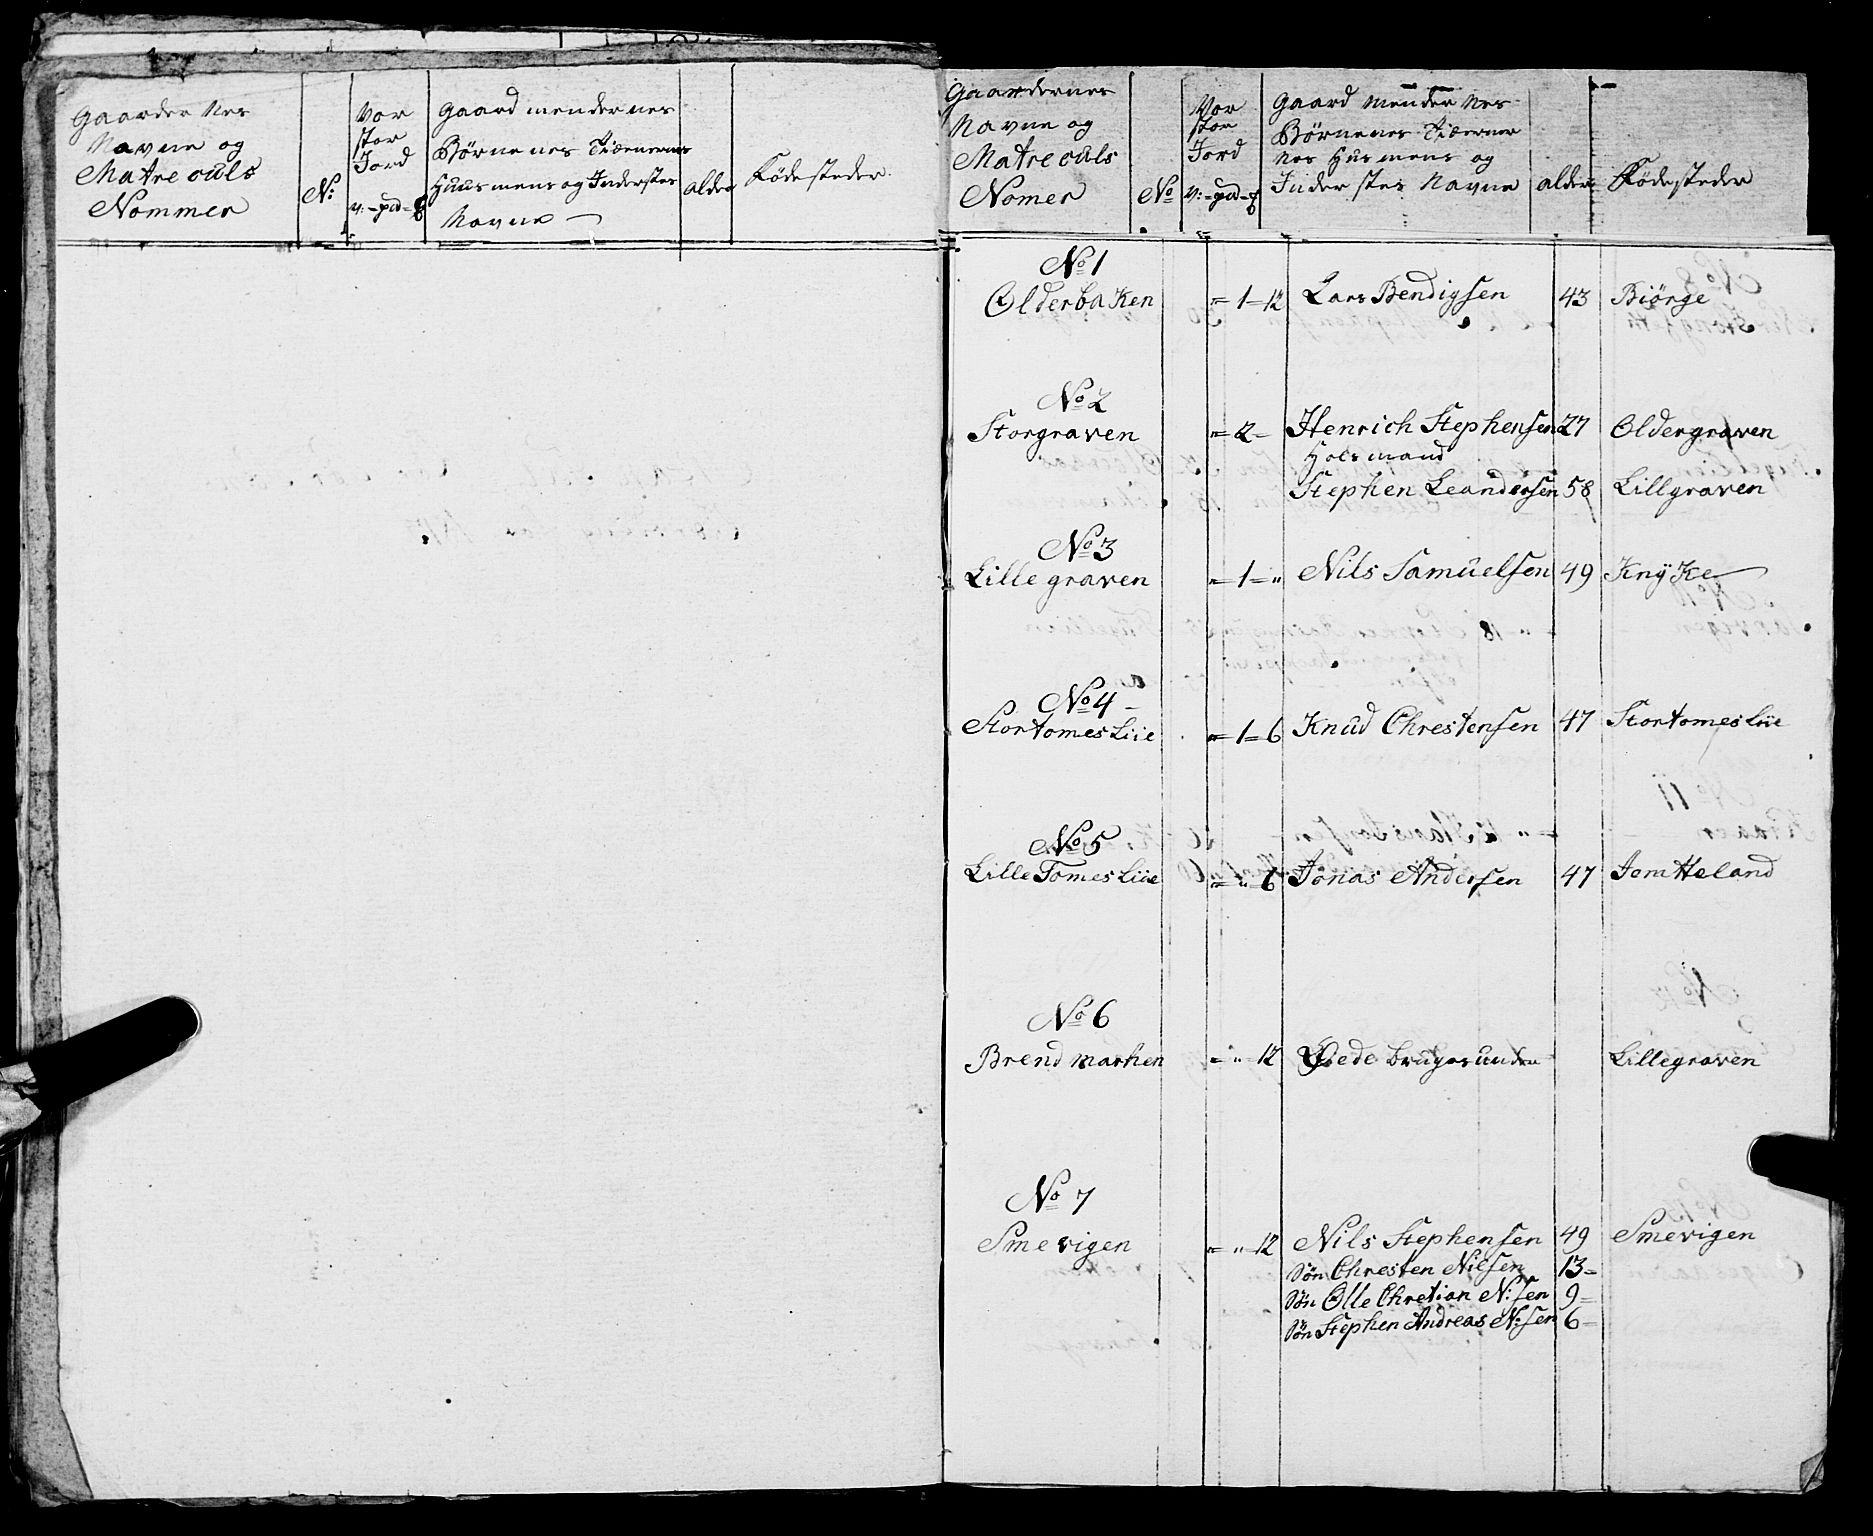 Gaarder Nes
Navne og
Matre culs
Nommer
No:
Vor
stor
Jord
v: - pd - ß
gaard mender nes
Börne nes Tiæenernes
Huus mens og Inderstes
Navne
alder
Födesteder
Gaardernes
Navne og
Matre culs
Nomer
No
Vor
stor
Jord
v: - pd - ß
gaard mender nes
Börne nes Tiæerner
nes Hus mens og
Inder stes Navne
alder
Födesteder
No 1
Olderbaken = 1 = 12 Lars Bendigsen 43 Biörge
No 2
Storgraven = 2 - Henrich Stephensen 27 Oldergraven
Holsmand
Stephen Leandersen 58 Lillgraven
No 3
Lille graven = 1 = " Nils Samuelsen 49 Knÿke
No 4
Stortomes Liie = 1 = 6 Knud Chrestensen 47 Stortomes Liie
No 5
Lille Tomes Liie = " 6 Jonas Andersen 47 Jomtteland
No 6
Brend marken = " 12 Øede bruges under Lillegraven
No 7
Smevigen = " 12 Nils Stephensen 49 Smevigen
Sön Chresten Nilsen 13 =
Sön Olle Chretian N: sen 9 =
Sön Stephen Andreas N: sen 6 =